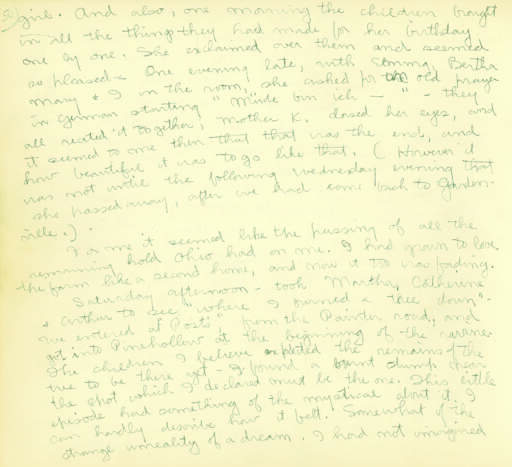 5) girl. And also, one morning the children brought
in all the things they had made for her birthday
one by one. She exclaimed over them and seemed
so pleased. One evening late, with Emma, Bertha
Mary & I in the room, she asked for an old prayer
in German starting "Müde bin ich — " - they
all recited it together, Mother K. closed her eyes, and
it seemed to me then that that was the end, and
how beautiful it was to go like that. (However it
was not until the following Wednesday evening that
she passed away, after we had come back to Garden-
ville.).
For me it seemed like the passing of all the
remaining hold Ohio had on me. I had grown to love
the farm like a second home, and now it too was fading.
Saturday afternoon - took Martha, Catherine
& Arthur to see "where I burned a tree down".
We entered at Post's, from the Painter road, and
got into Pinehollow at the beginning of the ravine
The children I believe expected the remains of the
tree to be there yet - I found a burnt stump near
the spot which I declared must be the one. This little
episode had something of the mystical about it. I
can hardly describe how it felt. Somewhat of the
strange unreality of a dream. I had not imagined